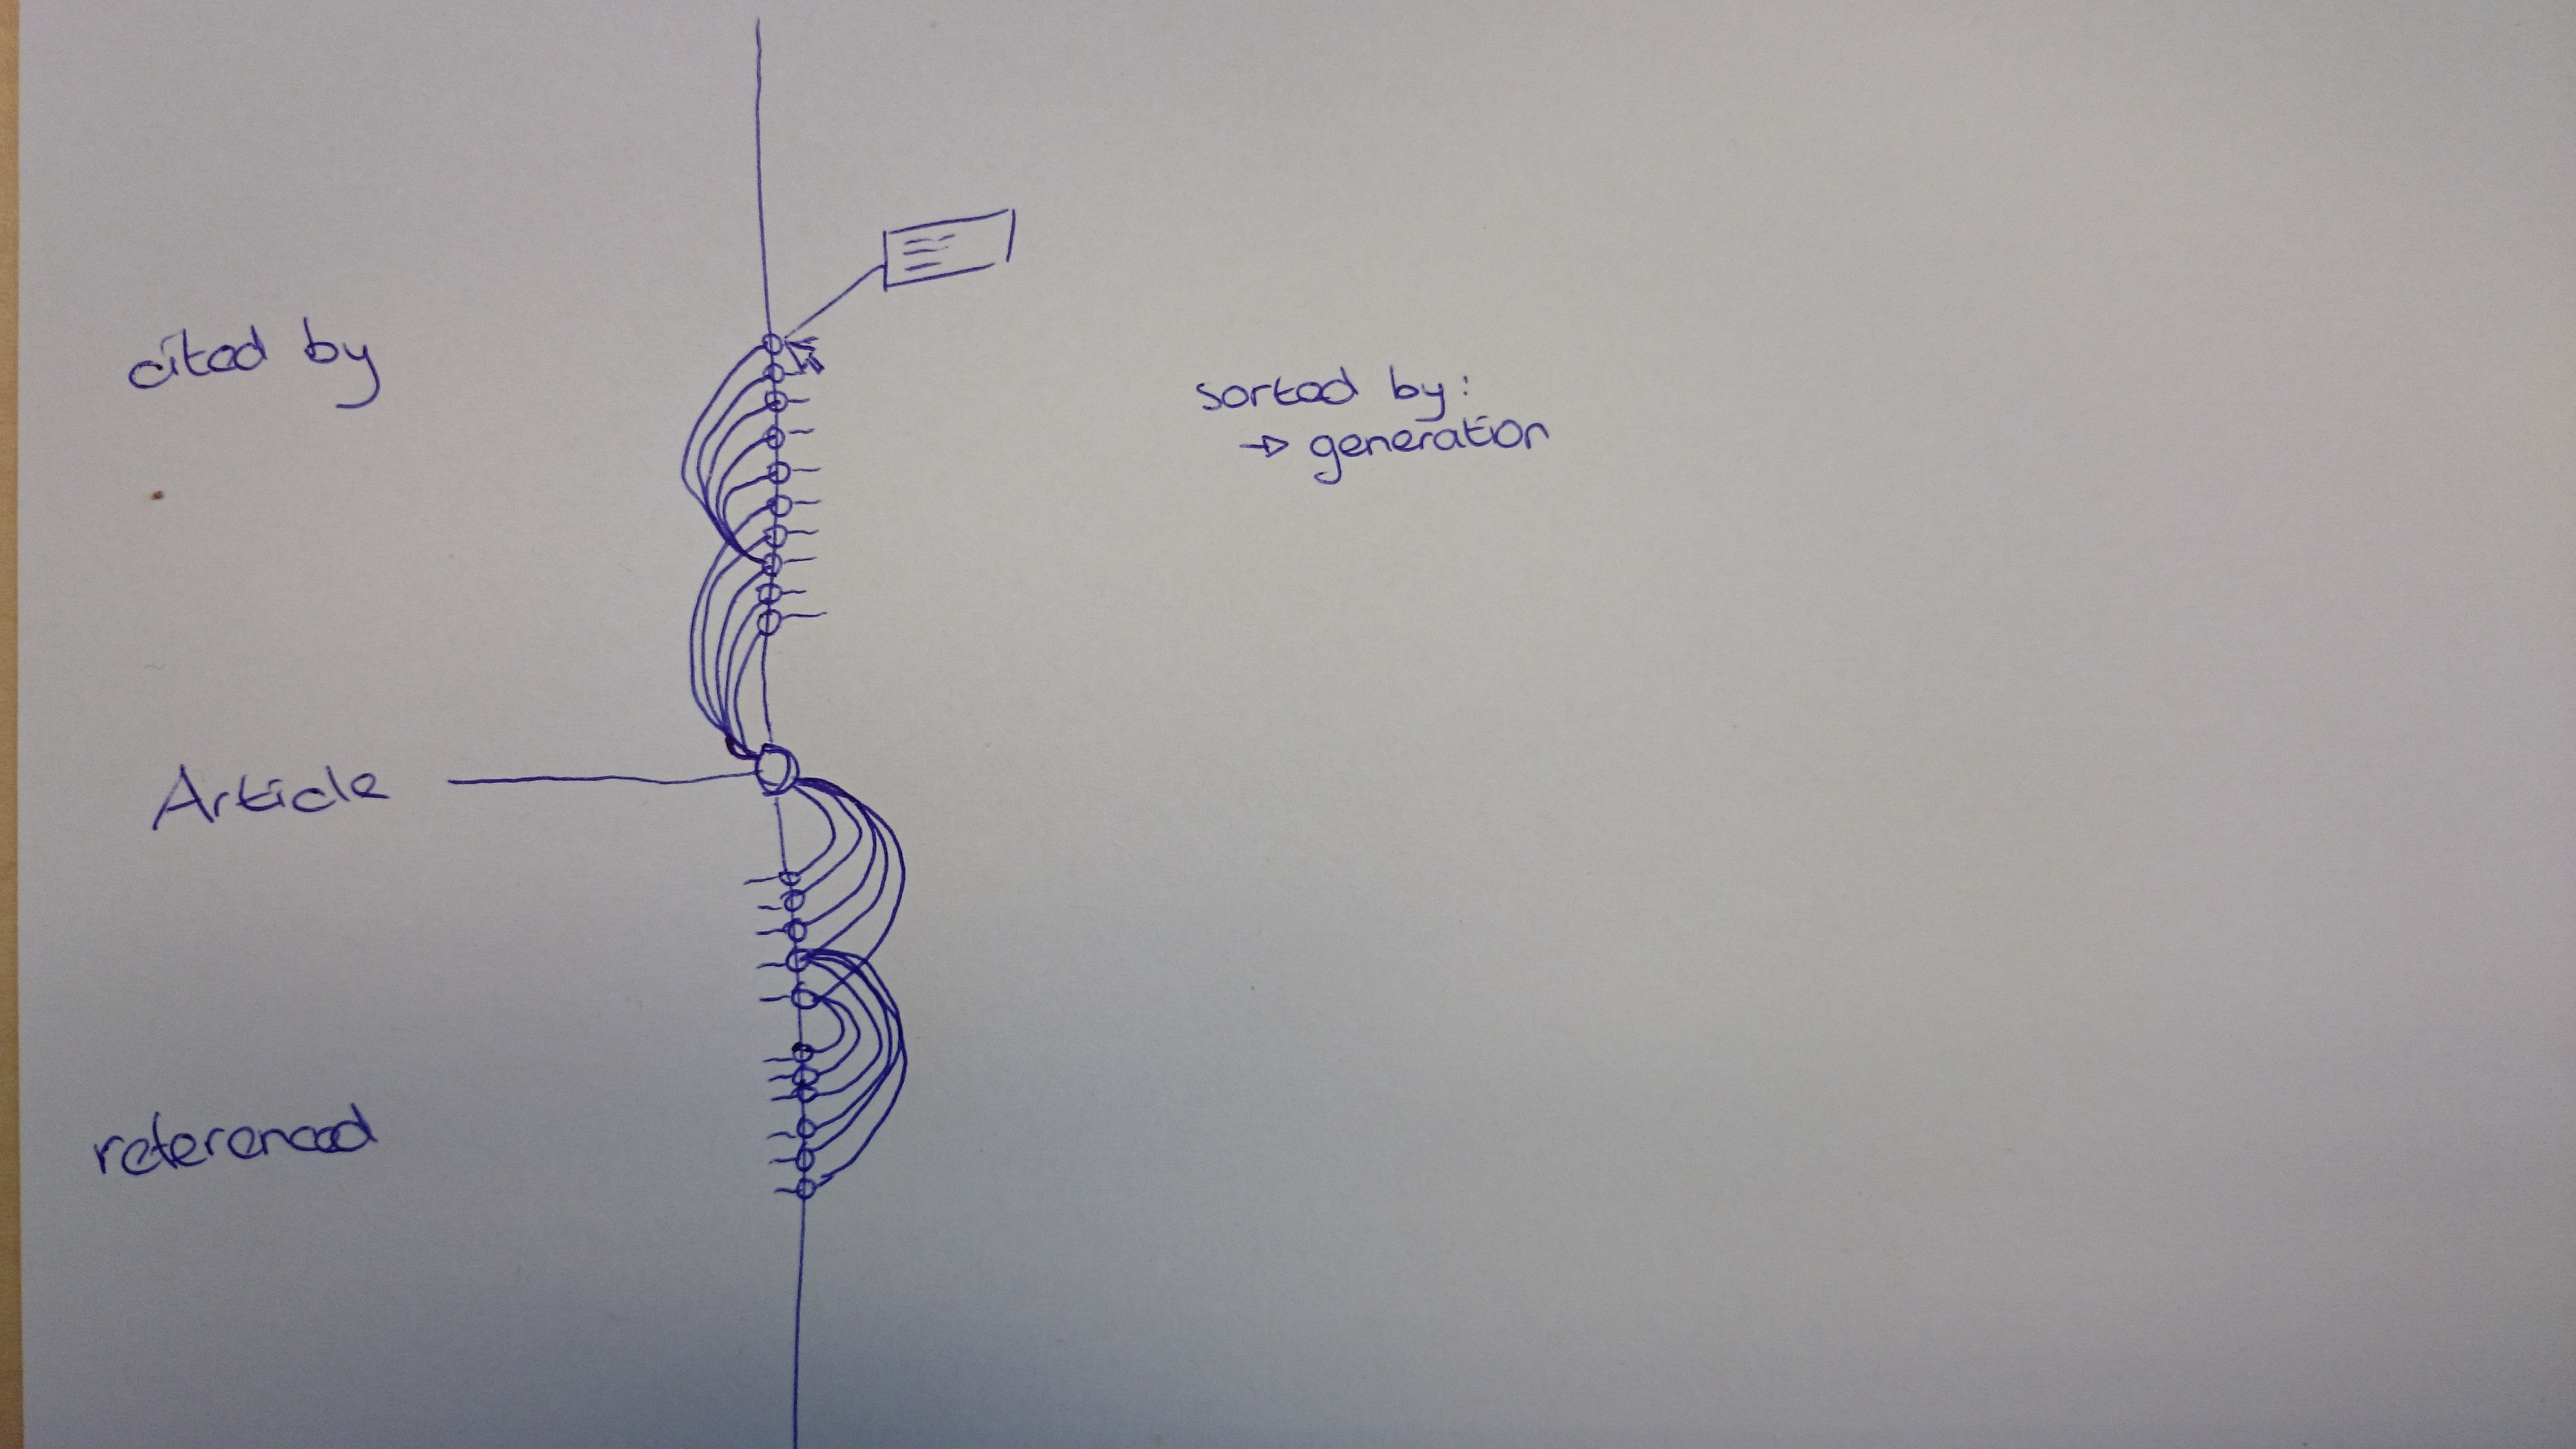 cited by
sorted by:
→ generation
Article
referenced